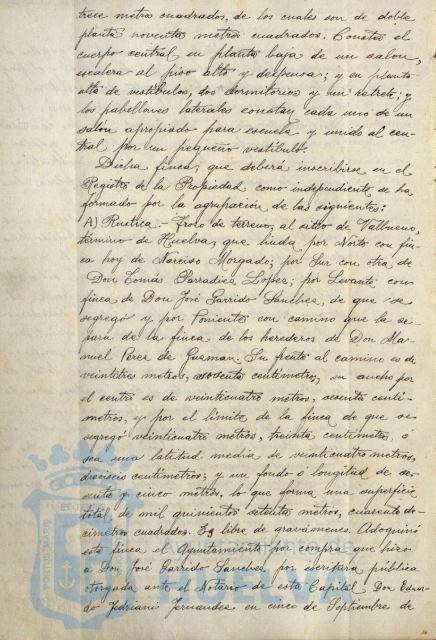 trece metros cuadrados, de los cuales son de doble
planta noventa metros cuadrados. Consta el
cuerpo central en planta baja de un salon,
escalera al piso alto y despensa; y en planta
alta de vestíbulos, dos dormitorios y un retrete; y
los pabellones laterales constan cada uno de un
salón apropiado para escuela y unido al cen-
tral por un pequeño vestíbulo.
Dicha finca, que deberá inscribirse en el
Registro de la Propiedad como independiente, se ha
formado por la agrupación de las siguientes:
A) Rustica.- Trozo de terreno, al sitio de Valbueno,
término de Huelva, que linda por Norte con fin-
ca hoy de Narciso Morgado; por Sur con otra, de
Don Tomás Barradica López; por Levante con
finca de Don José Garrido Sanchez, de que se
segregó y por Poniente con camino que la se-
para de la finca de los herederos de Don Ma-
nuel Perez de Guzman. Su frente al camino es de
veintitres metros, sesenta centimetros, su ancho por
el centro es de veinticuatro metros, sesenta centi-
metros, y por el límite de la finca de que se
segregó veinticuatro metros, treinta centimetros, ó
sea una latitud media de veinticuatro metros,
dieciseis centímetros; y un fondo ó longitud de se-
senta y cinco metros, lo que forma una superficie
total de mil quinientos setenta metros, cuarenta de-
címetros cuadrados. Es libre de gravámenes. Adquirió
esta finca el Ayuntamiento por compra que hizo
a Don José Garrido Sanchez, por escritura pública
otorgada ante el Notario de esta Capital Don Eduar-
do Fedriani Fernandez en cinco de Septiembre de